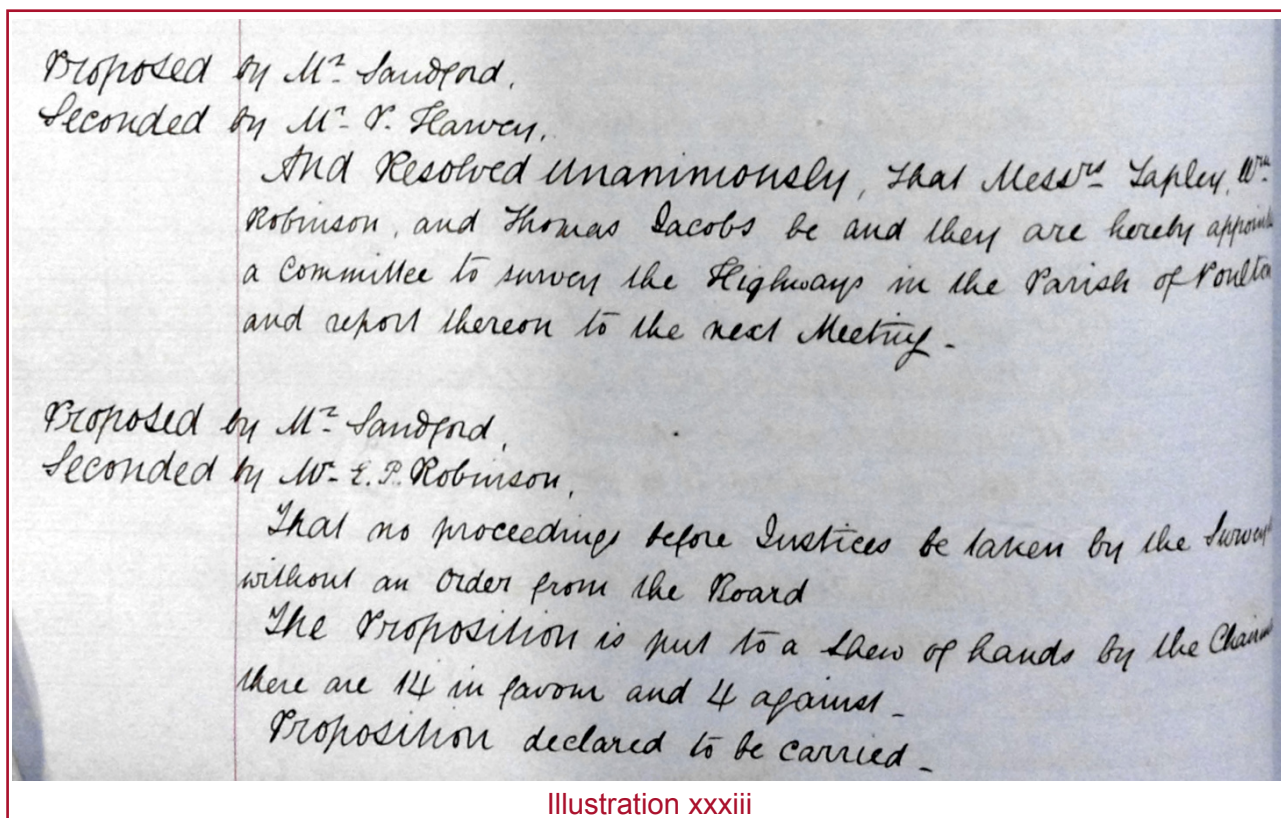 Proposed by Mr Sandford,
Seconded by Mr P. Harvey,
And Resolved Unanimously, that Messrs Tapley, Wm
Robinson, and Thomas Jacobs be and they are hereby
a Committee to survey the Highways in the Parish of Poulton
and report thereon to the next Meeting -
Proposed by Mr Sandford,
Seconded by Mr E. P. Robinson,
That no proceedings before Justices be taken by the
without an Order from the Board
The Proposition is put to a shew of hands by the
there are 14 in favour and 4 against -
Proposition declared to be carried -
Illustration xxxiii